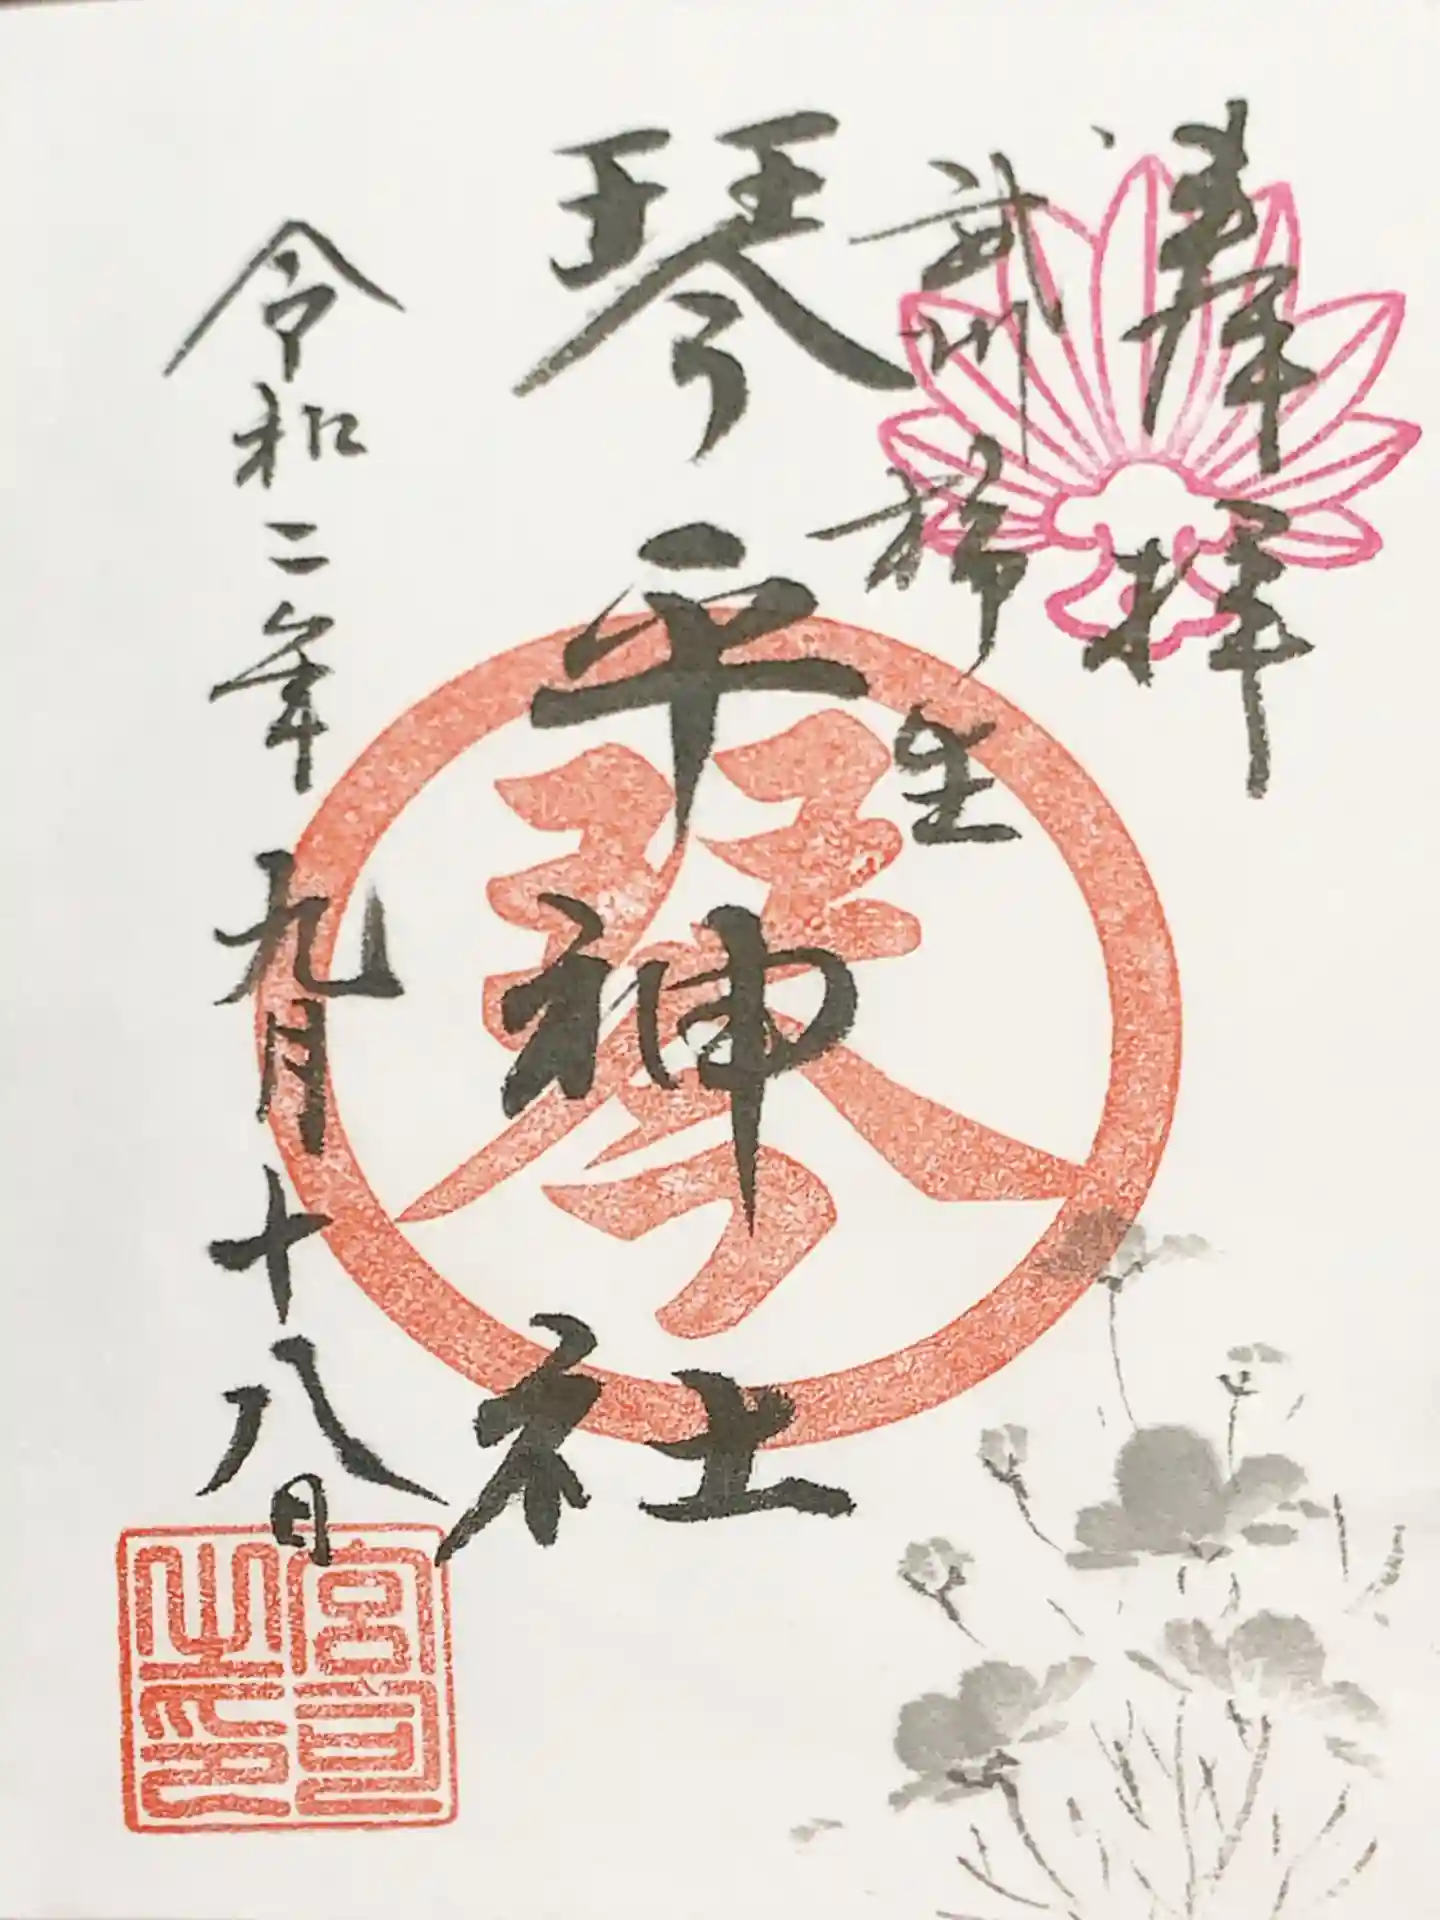 奉拝
武州柿生
琴平神社
令和二年九月十八日
琴
宮司之印